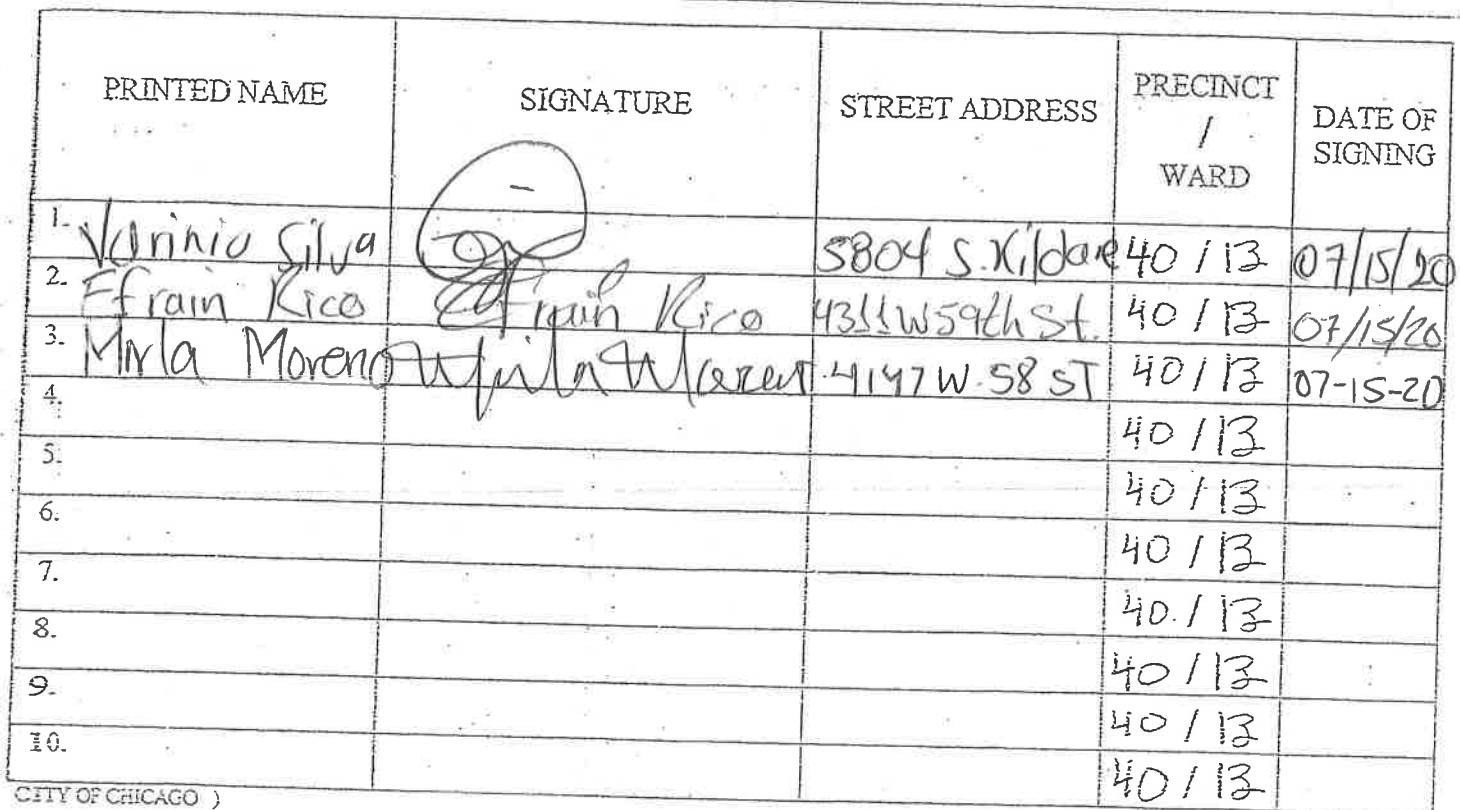 PRINTED NAME SIGNATURE STREET ADDRESS PRECINCT / WARD DATE OF SIGNING
1. Silva 5804 S. Kildare 40 / 13 07/15/20
2. Efrain Rico Efrain Rico 4311 W 59th St. 40 / 13 07/15/20
3. Mirla Moreno Mirla Moreno 4147 W. 58 ST 40 / 13 07-15-20
4. 40 / 13
5. 40 / 13
6. 40 / 13
7. 40 / 13
8. 40 / 13
9. 40 / 13
10. 40 / 13
CITY OF CHICAGO )